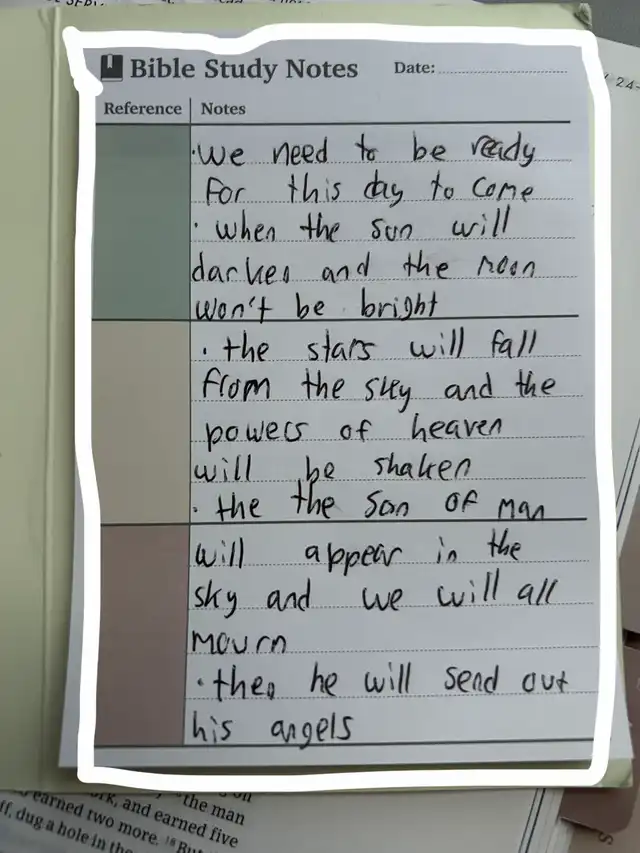 Bible Study Notes Date:
Reference Notes
·we need to be ready
for this day to come
· when the sun will
darken and the moon
won't be bright
· the stars will fall
from the sky and the
powers of heaven
will be shaken
· the the son of man
will appear in the
sky and we will all
mourn
· then he will send out
his angels
earned two more. the man
rk, and earned five
ff, dug a hole in the
24-